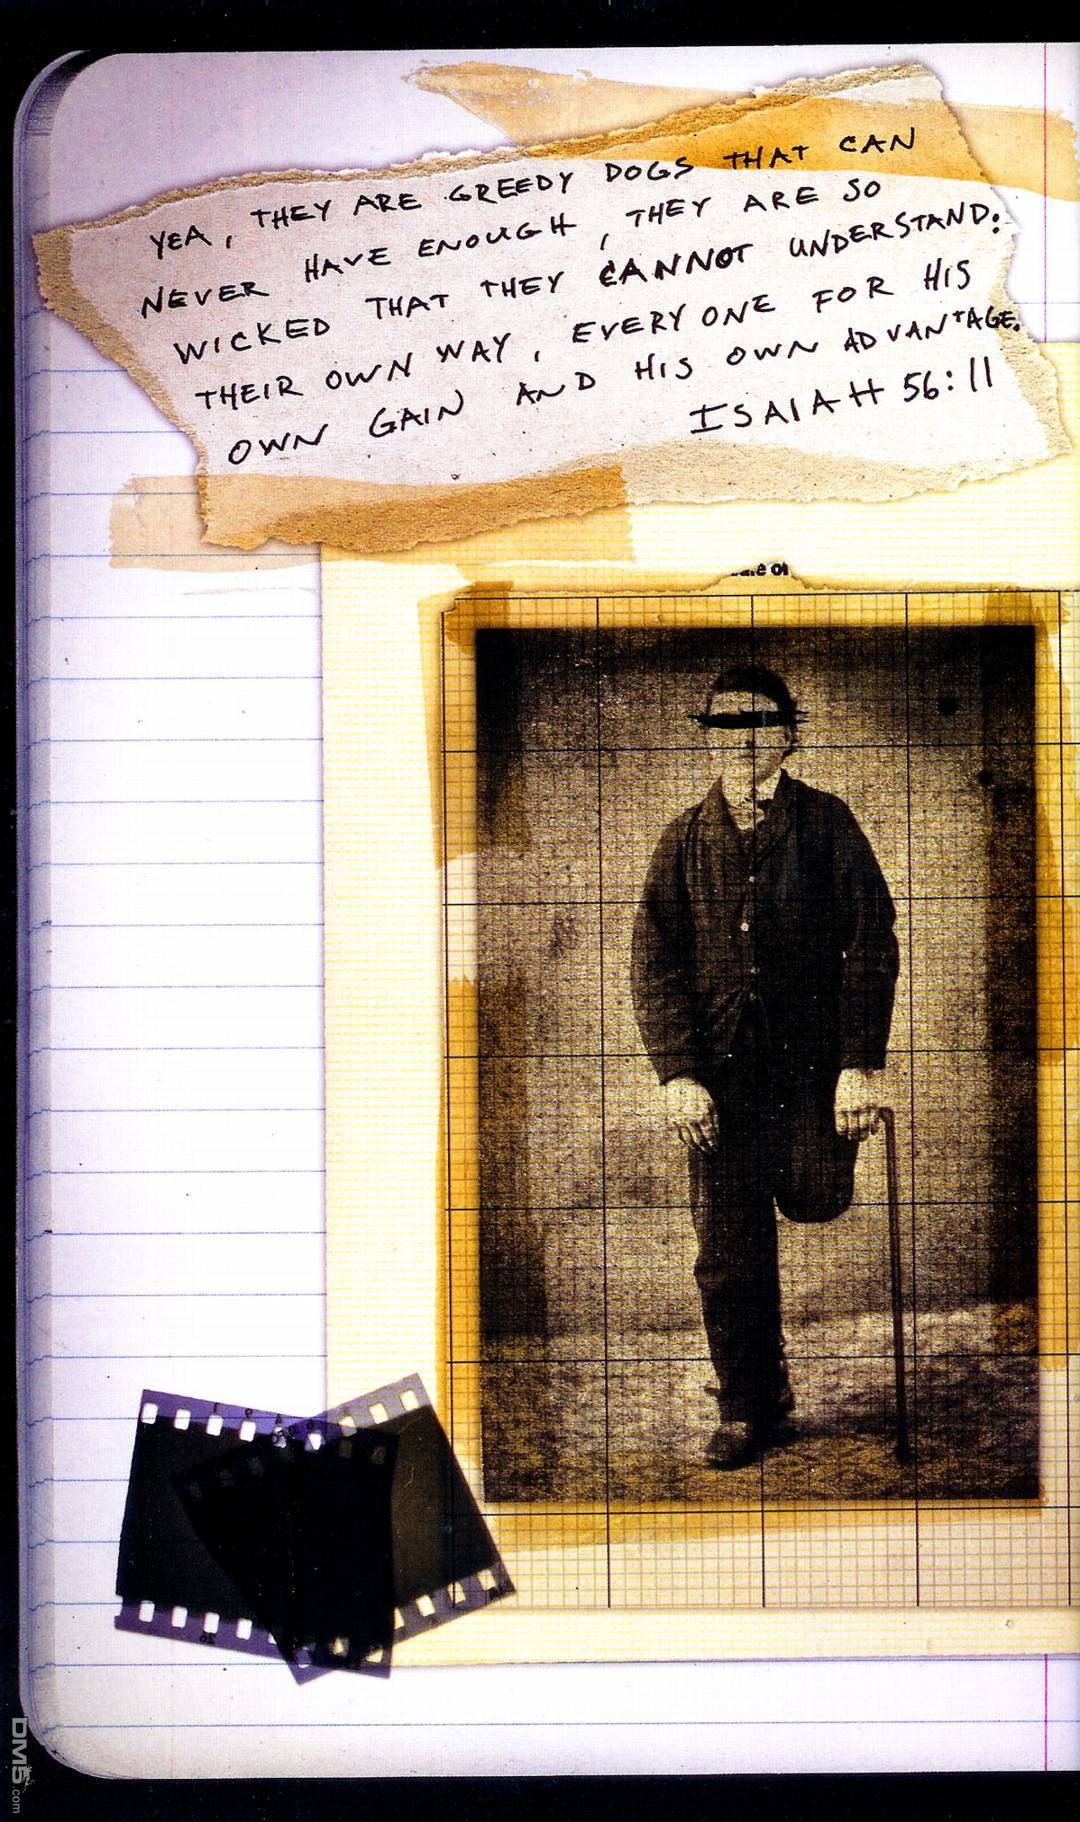 YEA, THEY ARE GREEDY DOGS THAT CAN
NEVER HAVE ENOUGH, THEY ARE SO
WICKED THAT THEY CANNOT UNDERSTAND.
THEIR OWN WAY, EVERYONE FOR HIS
OWN GAIN AND HIS OWN ADVANTAGE.
ISAIAH 56:11
DM5.com